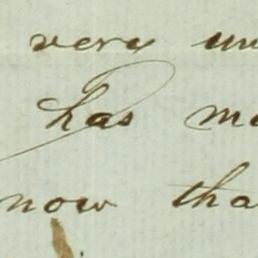 very un
has m
now tha